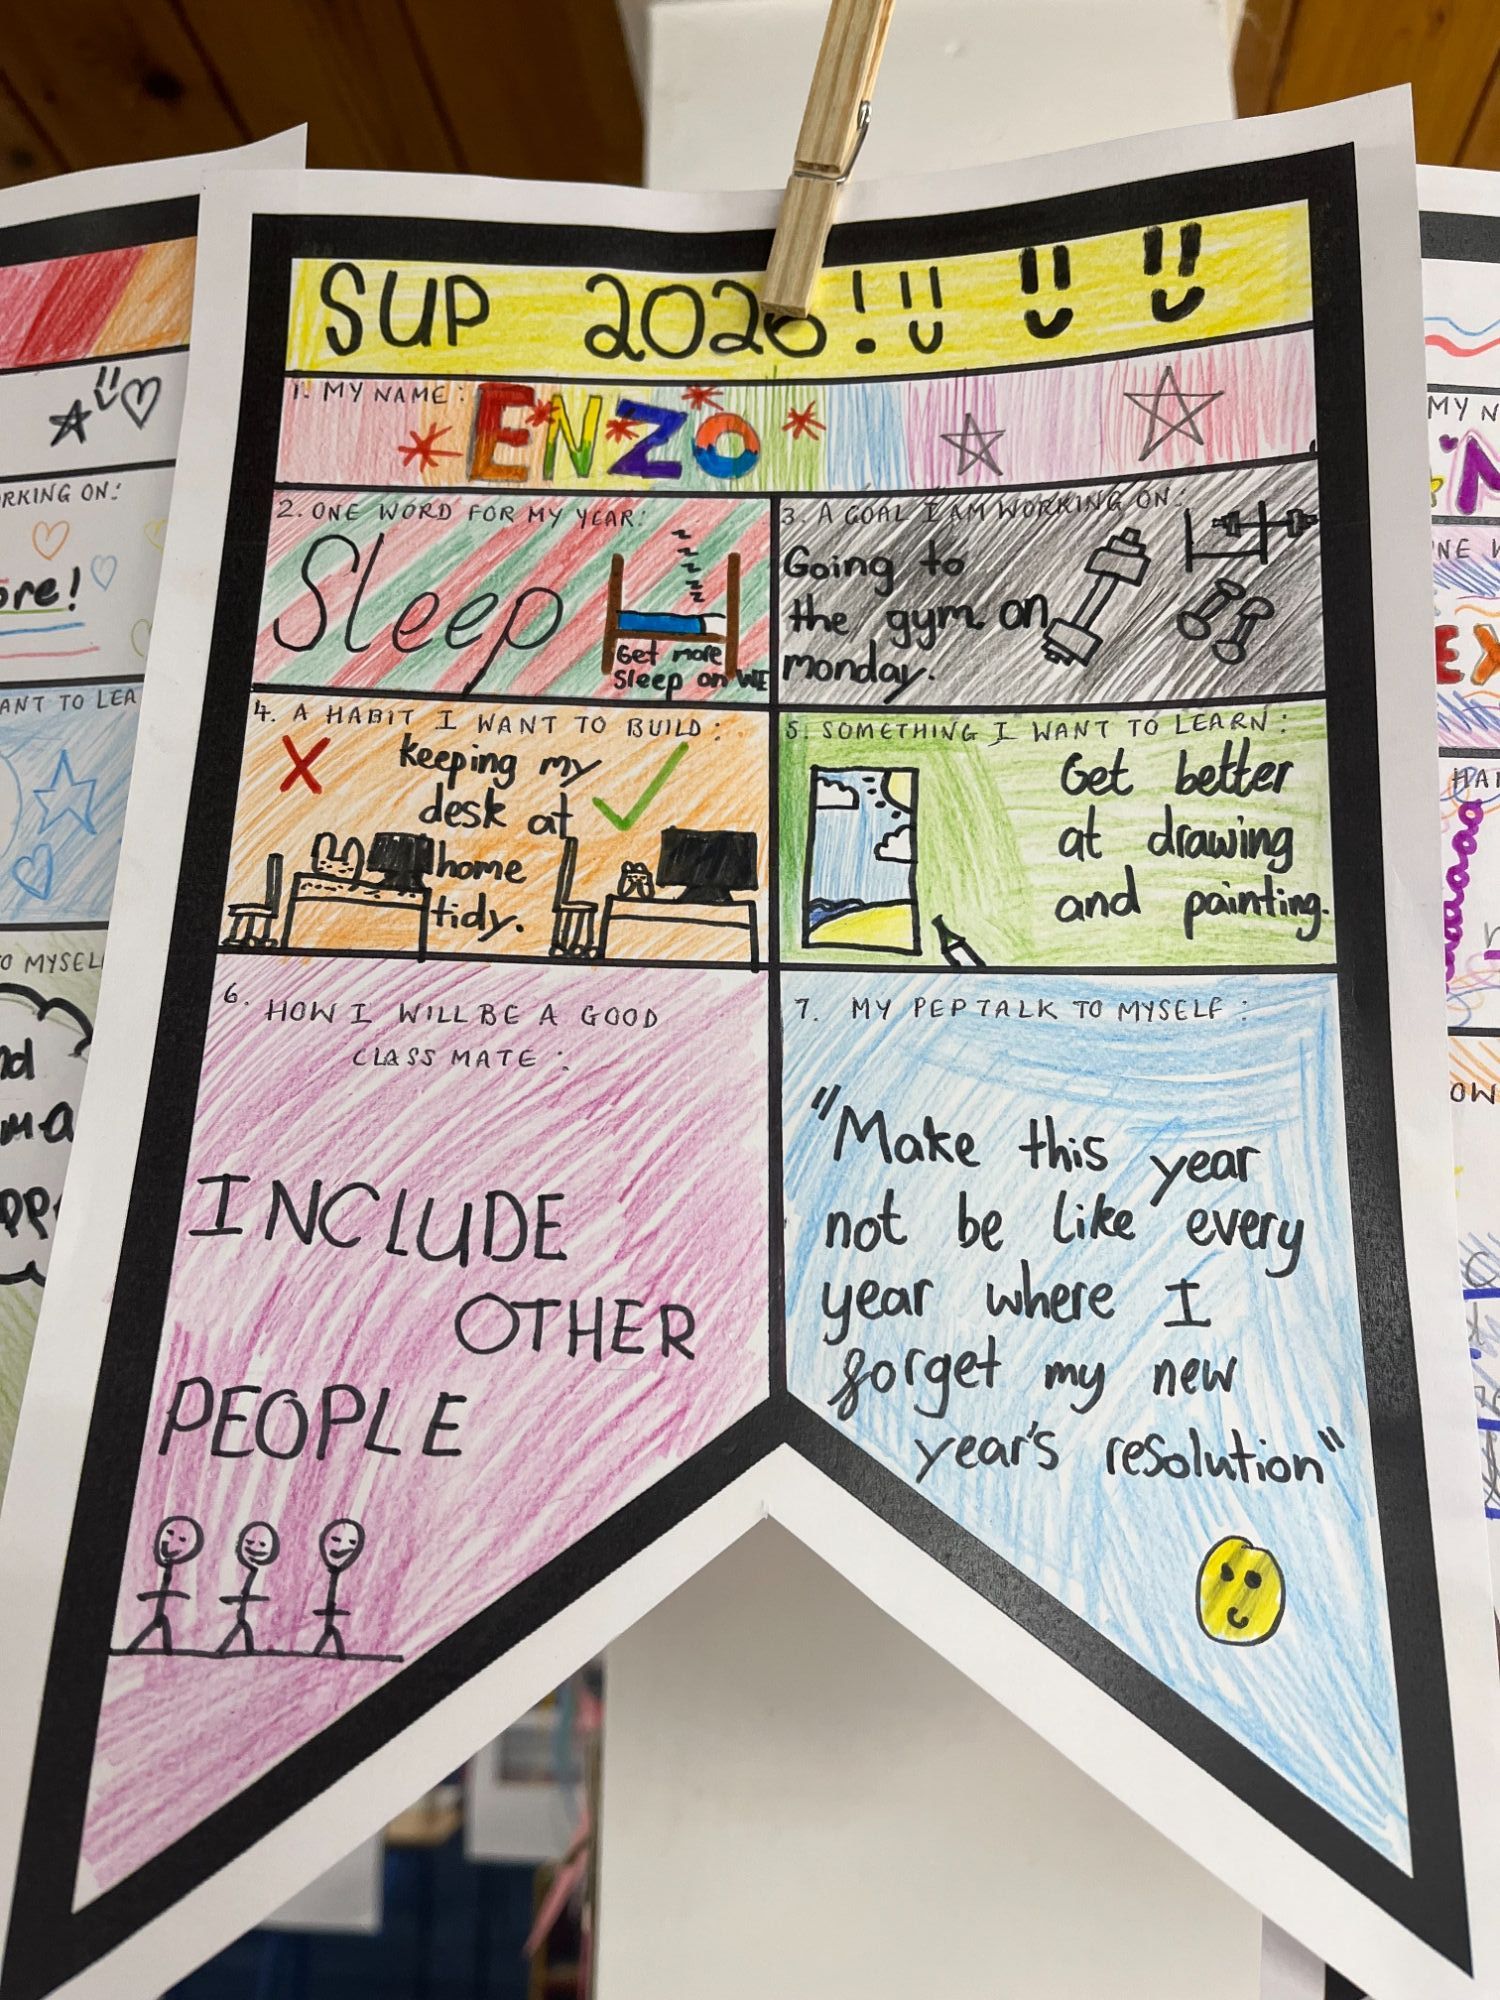 SUP 2026!
1. MY NAME: ENZO
2. ONE WORD FOR MY YEAR:
Sleep
zzzz
Get more
Sleep on WE
3. A GOAL I AM WORKING ON:
Going to
the gym on
monday.
4. A HABIT I WANT TO BUILD:
keeping my
desk at
home
tidy.
5. SOMETHING I WANT TO LEARN:
Get better
at drawing
and painting.
6. HOW I WILL BE A GOOD
CLASS MATE:
INCLUDE
OTHER
PEOPLE
7. MY PEP TALK TO MYSELF:
"Make this year
not be like every
year where I
forget my new
year's resolution"
RKING ON:
ore!
ANT TO LEA
O MYSEL
MY N